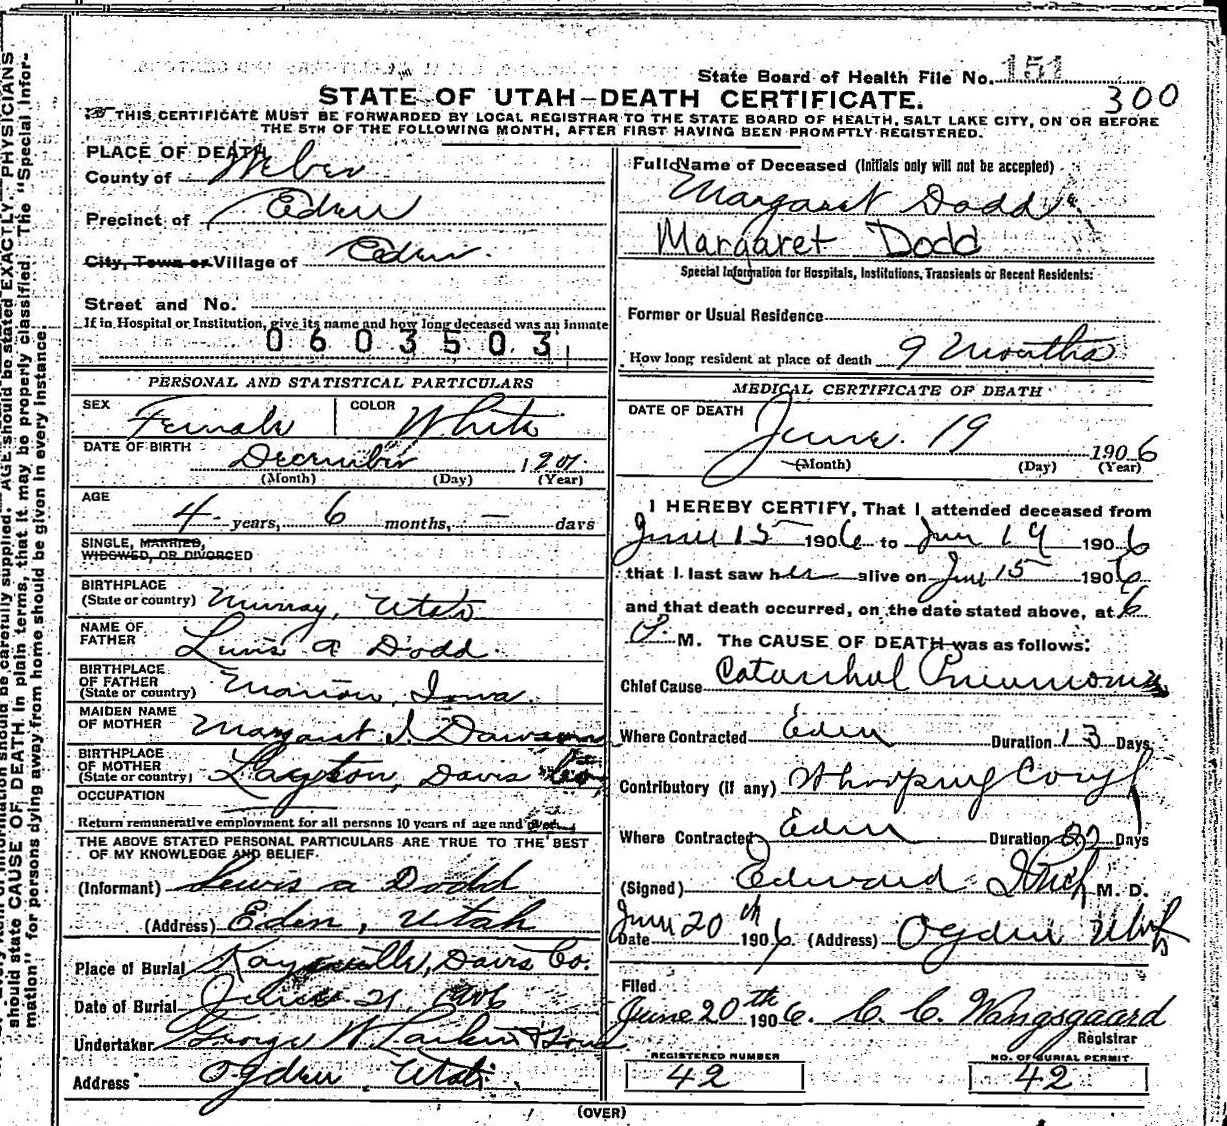 State Board of Health File No. 151
300
STATE OF UTAH—DEATH CERTIFICATE.
THIS CERTIFICATE MUST BE FORWARDED BY LOCAL REGISTRAR TO THE STATE BOARD OF HEALTH, SALT LAKE CITY, ON OR BEFORE
THE 5TH OF THE FOLLOWING MONTH, AFTER FIRST HAVING BEEN PROMPTLY REGISTERED.
PLACE OF DEATH
County of Weber
Precinct of Eden
City, Town or Village of Eden.
Street and No.
If in Hospital or Institution, give its name and how long deceased was an inmate
0603503
PERSONAL AND STATISTICAL PARTICULARS
SEX Female COLOR White
DATE OF BIRTH December 1901
(Month) (Day) (Year)
AGE
4 years, 6 months, — days
SINGLE, MARRIED,
WIDOWED, OR DIVORCED
BIRTHPLACE
(State or country) Murray, Utah
NAME OF
FATHER Lewis A Dodd
BIRTHPLACE
OF FATHER
(State or country) Marion, Iowa.
MAIDEN NAME
OF MOTHER Margaret I. Dawson
BIRTHPLACE
OF MOTHER
(State or country) Layton, Davis Co.
OCCUPATION
Return remunerative employment for all persons 10 years of age and over
THE ABOVE STATED PERSONAL PARTICULARS ARE TRUE TO THE BEST
OF MY KNOWLEDGE AND BELIEF.
(Informant) Lewis A Dodd
(Address) Eden, Utah
Place of Burial Kaysville, Davis Co.
Date of Burial June 21, 1906
Undertaker George W. Larkin & Sons
Address Ogden, Utah.
Full Name of Deceased (Initials only will not be accepted)
Margaret Dodd
Margaret Dodd
Special Information for Hospitals, Institutions, Transients or Recent Residents:
Former or Usual Residence
How long resident at place of death 9 Months
MEDICAL CERTIFICATE OF DEATH
DATE OF DEATH
June. 19 1906
(Month) (Day) (Year)
I HEREBY CERTIFY, That I attended deceased from
June 15 1906 to June 19 1906
that I last saw her alive on June 15 1906
and that death occurred, on the date stated above, at 6
P. M. The CAUSE OF DEATH was as follows:
Chief Cause Catarrhal Pneumonia
Where Contracted Eden Duration 13 Days
Contributory (if any) Whooping Cough
Where Contracted Eden Duration Days
(Signed) Edward M. D.
Date June 20th 1906. (Address) Ogden Utah
Filed
June 20th 1906. C. C. Wangsgaard
Registrar
REGISTERED NUMBER
42
NO. OF BURIAL PERMIT
42
(OVER)
should state CAUSE OF DEATH in plain terms, that it may be properly classified. The "Special Infor-
mation" for persons dying away from home should be given in every instance.